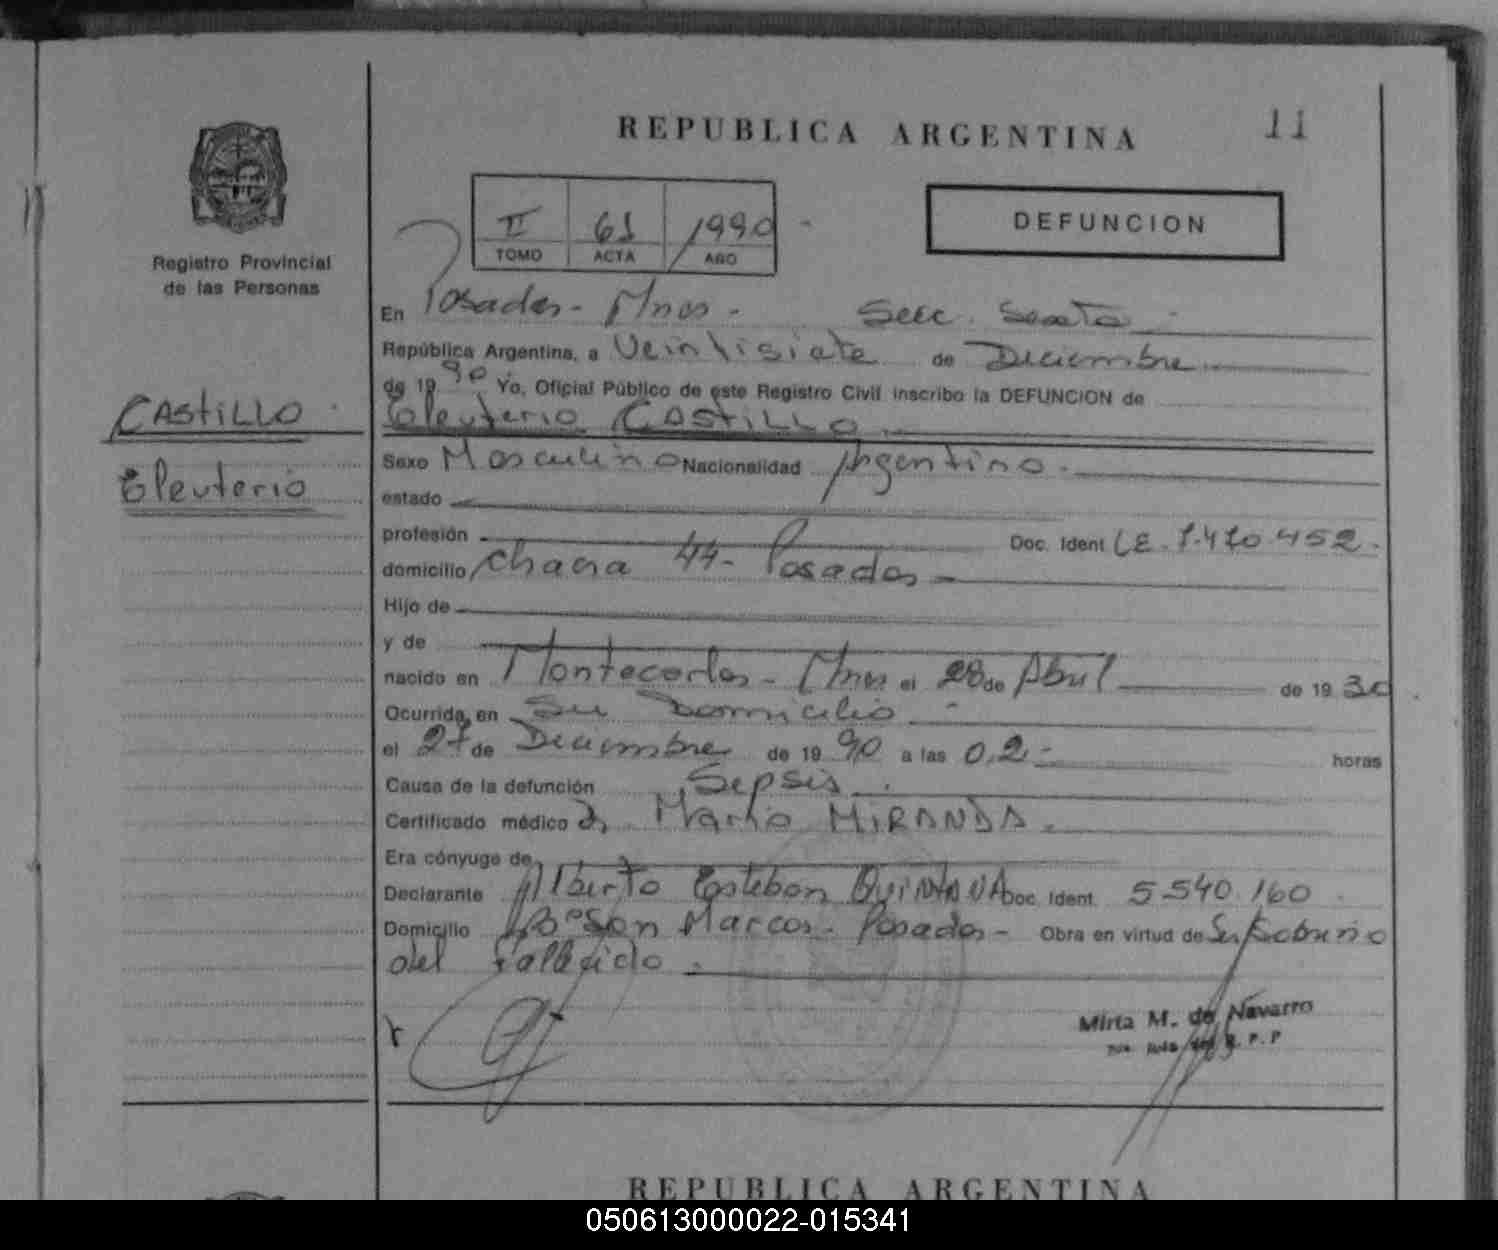 REPUBLICA ARGENTINA
11
Registro Provincial
de las Personas
II 61 1990
TOMO ACTA AÑO
DEFUNCION
En Posadas - Mnes - Secc. Sexta
República Argentina, a Veintisiete de Diciembre
de 1990 Yo, Oficial Público de este Registro Civil inscribo la DEFUNCION de
CASTILLO
Eleuterio CASTILLO
Eleuterio
Sexo Masculino Nacionalidad Argentino
estado
profesión Doc. Ident. LE. 7.470.452
domicilio Chacra 44 - Posadas
Hijo de
y de
nacido en Montecarlos - Mnes el 28 de Abril de 1930
Ocurrida en Su Domicilio
el 27 de Diciembre de 1990 a las 0,2 horas
Causa de la defunción Sepsis
Certificado médico Dr. Mario MIRANDA
Era cónyuge de
Declarante Alberto Esteban QUINTANA Doc. Ident. 5.540.160
Domicilio Bº San Marcos - Posadas - Obra en virtud de Ser Sobrino
del Fallecido
Mirta M. de Navarro
R. P. P
REPUBLICA ARGENTINA
050613000022-015341